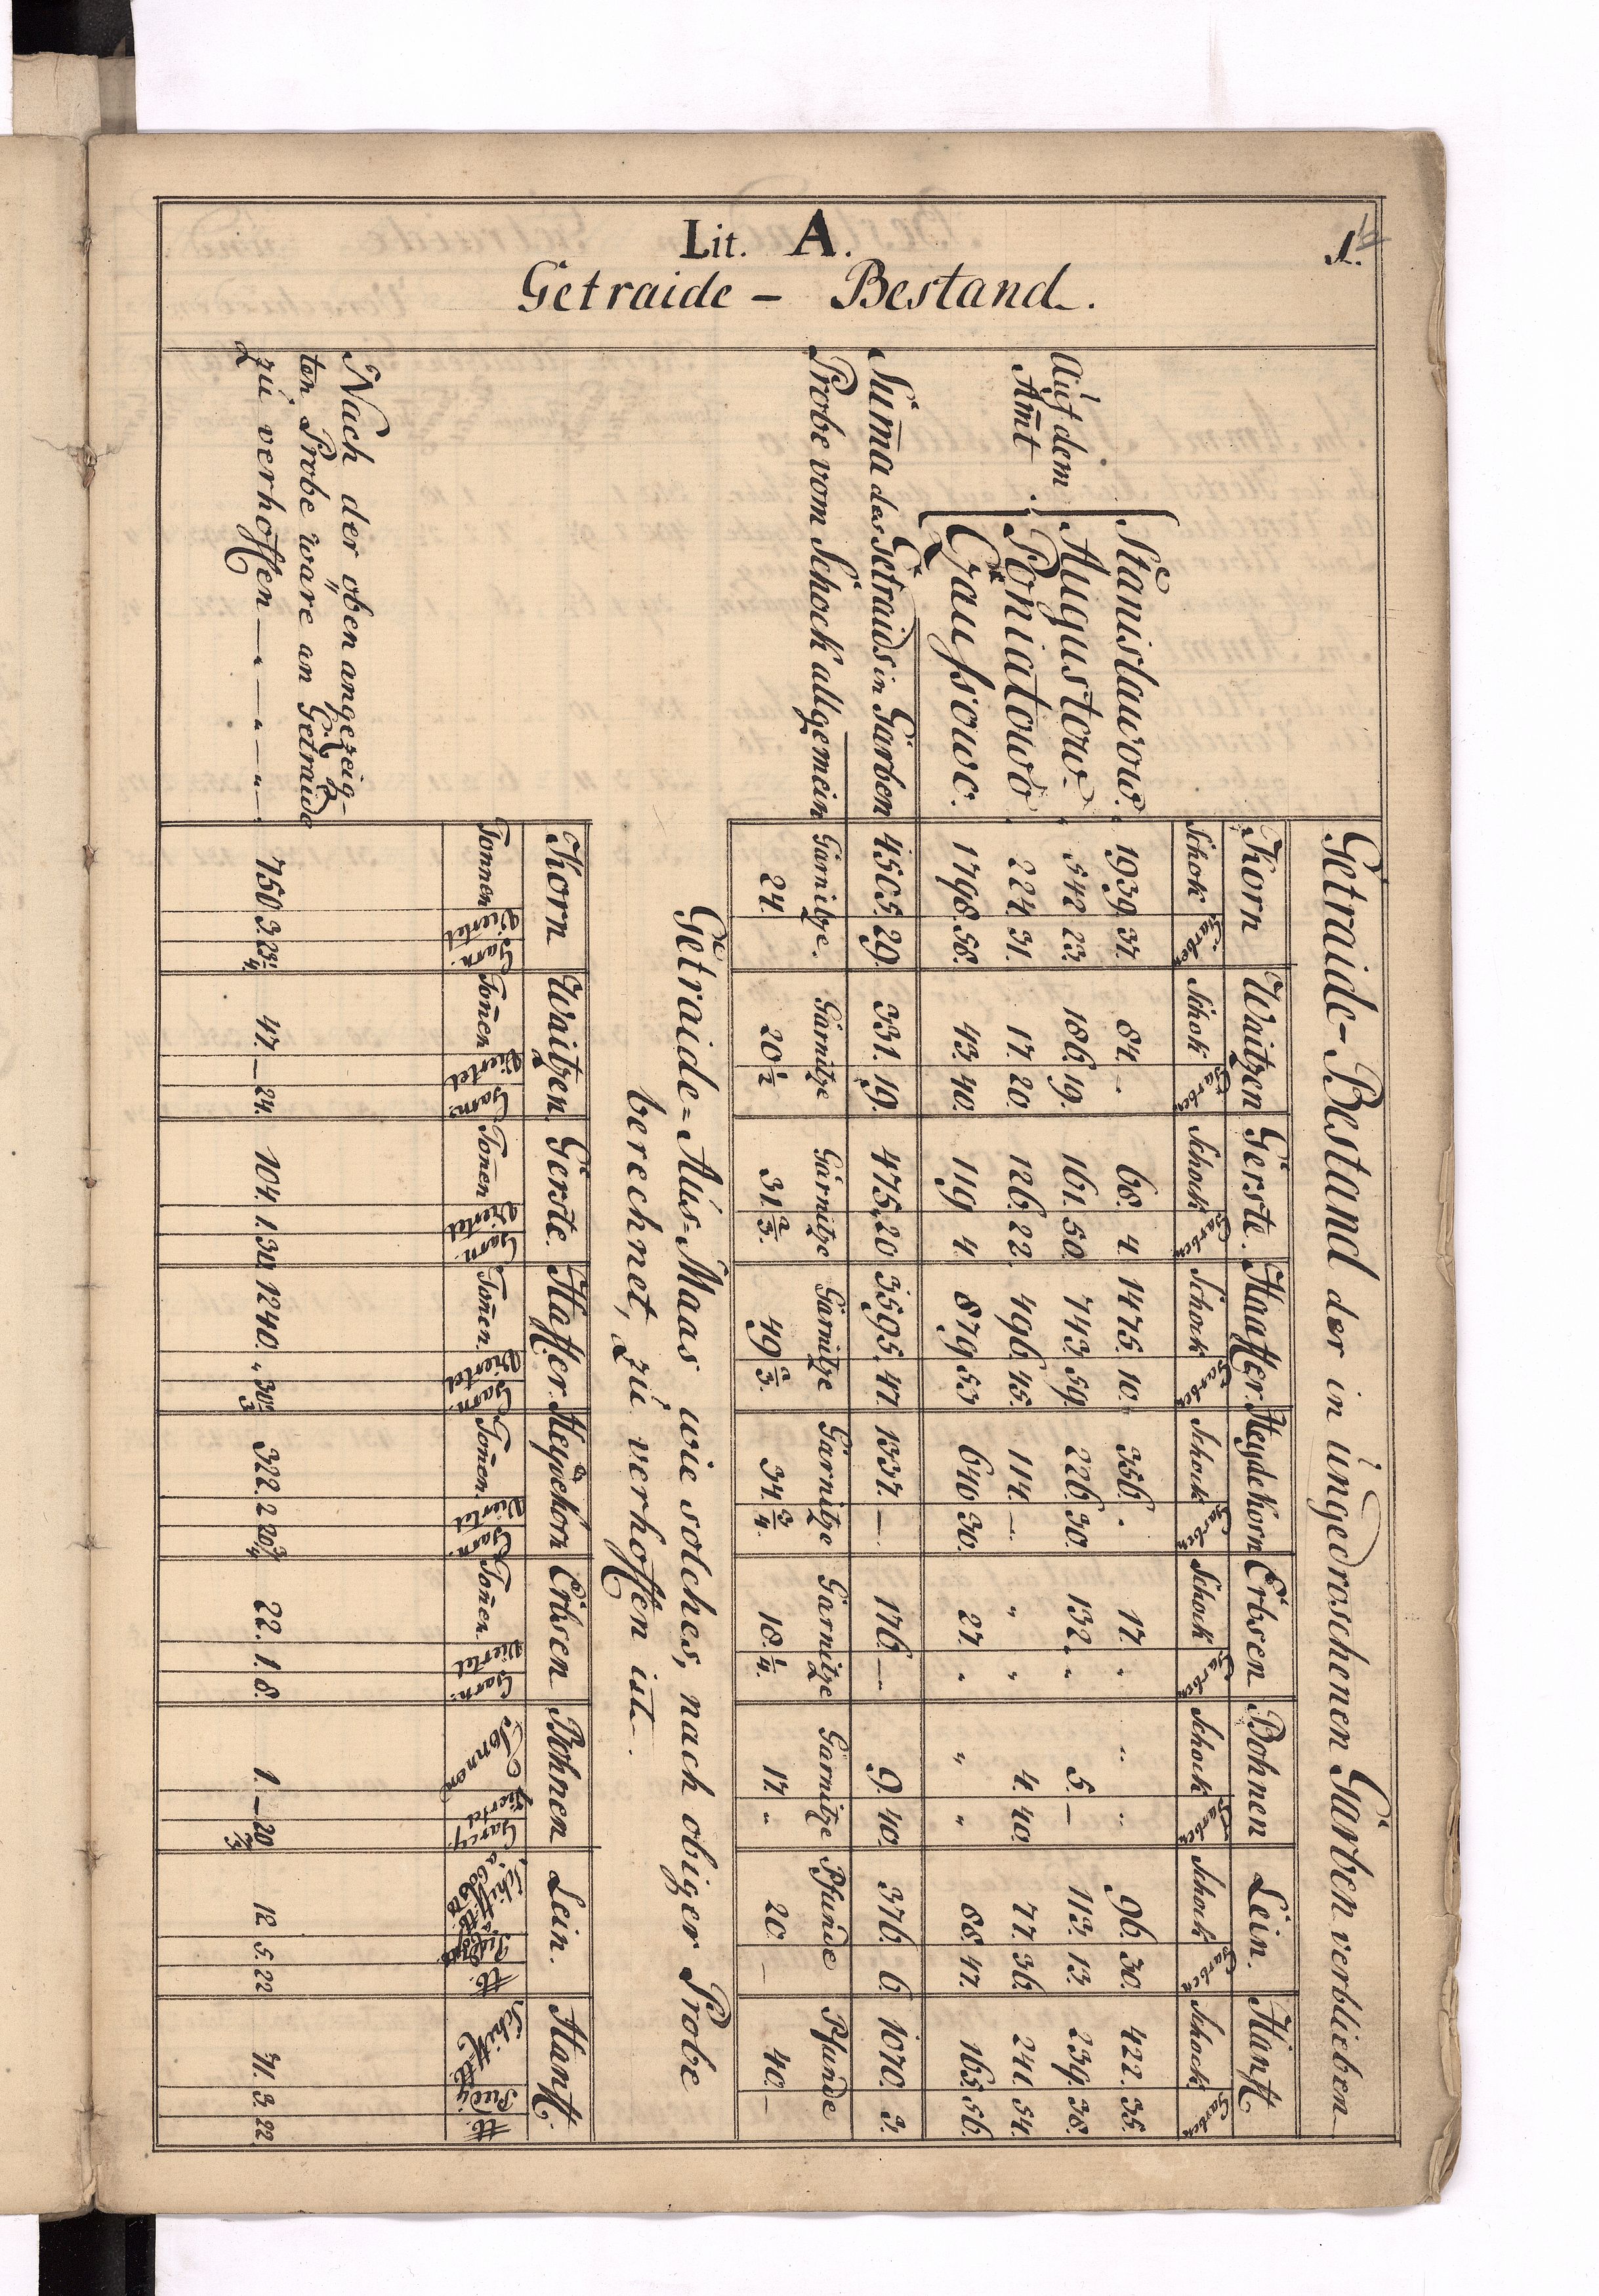 1.
Lit. A.
Getraide - Bestand.
Getraide-Bestand der in ungedroschenen Garben verblieben
Korn Waitzen Gerste. Haaffer. Heydekorn Erbsen Bohnen Lein. Hanff.
Schok Garben Schok Garben Schock Garben Schock Garben Schock Garben Schock Garben Schock Garben Schock Garben Schock Garben
Auf dem Amt
Stanislawow. 1939. 37. 84. - 68. 4. 1475. 10. 356. . 17. " " " 96. 30. 422. 35.
Augustow. 542. 23. 186. 19. 161. 50. 743. 59. 226. 30. 132. " 5. — 113. 13. 239. 38.
Poniatowo. 224. 31. 17. 20. 126. 22. 496. 45. 114. — " " 4. 40. 77. 36. 241. 54.
Gaussowo. 1798. 58. 43. 40. 119. 4. 879. 53. 640. 30. 27. " " " 88. 47. 165. 56.
Suma des Getraids in Garben 4505. 29. 331. 19. 475. 20 3595. 47. 1337. — 176. — 9. 40. 376. 6. 1070. 3.
Probe vom Schock allgemein Garnitze. Garnitze Garnitze Garnitze Garnitze Garnitze Garnitze Pfunde Pfunde
24. 20 1/2 31 2/3. 49 2/3. 34 3/4. 18 1/4. 17. " 20. — 40. —
Getraide=Aus=Maas wie solches, nach obiger Probe
berechnet, zu verhoffen ist.
Korn Waitzen Gerste. Haffer. Heydekorn Erbsen Bohnen Lein. Hanff.
Tonnen Viertel Garn. Tonen Viertel Garn. Tonen Viertel Garn. Tonen. Viertel Garn. Tonen. Viertel Garn. Tonen. Viertel Garn. Tonnen Viertel Schiff ℔. ℔. Schiff ℔. ℔.
Nach der oben angezeig-
ten Probe wäre an Getraide
zu verhoffen — " — " — " —. 750. 3. 23 1/4. 47. — 24. 104. 1. 30 1240. " 30 2/3 322. 2 20 3/4 22. 1. 8. 1. — 20 12. 5. 22 71. 3. 22.